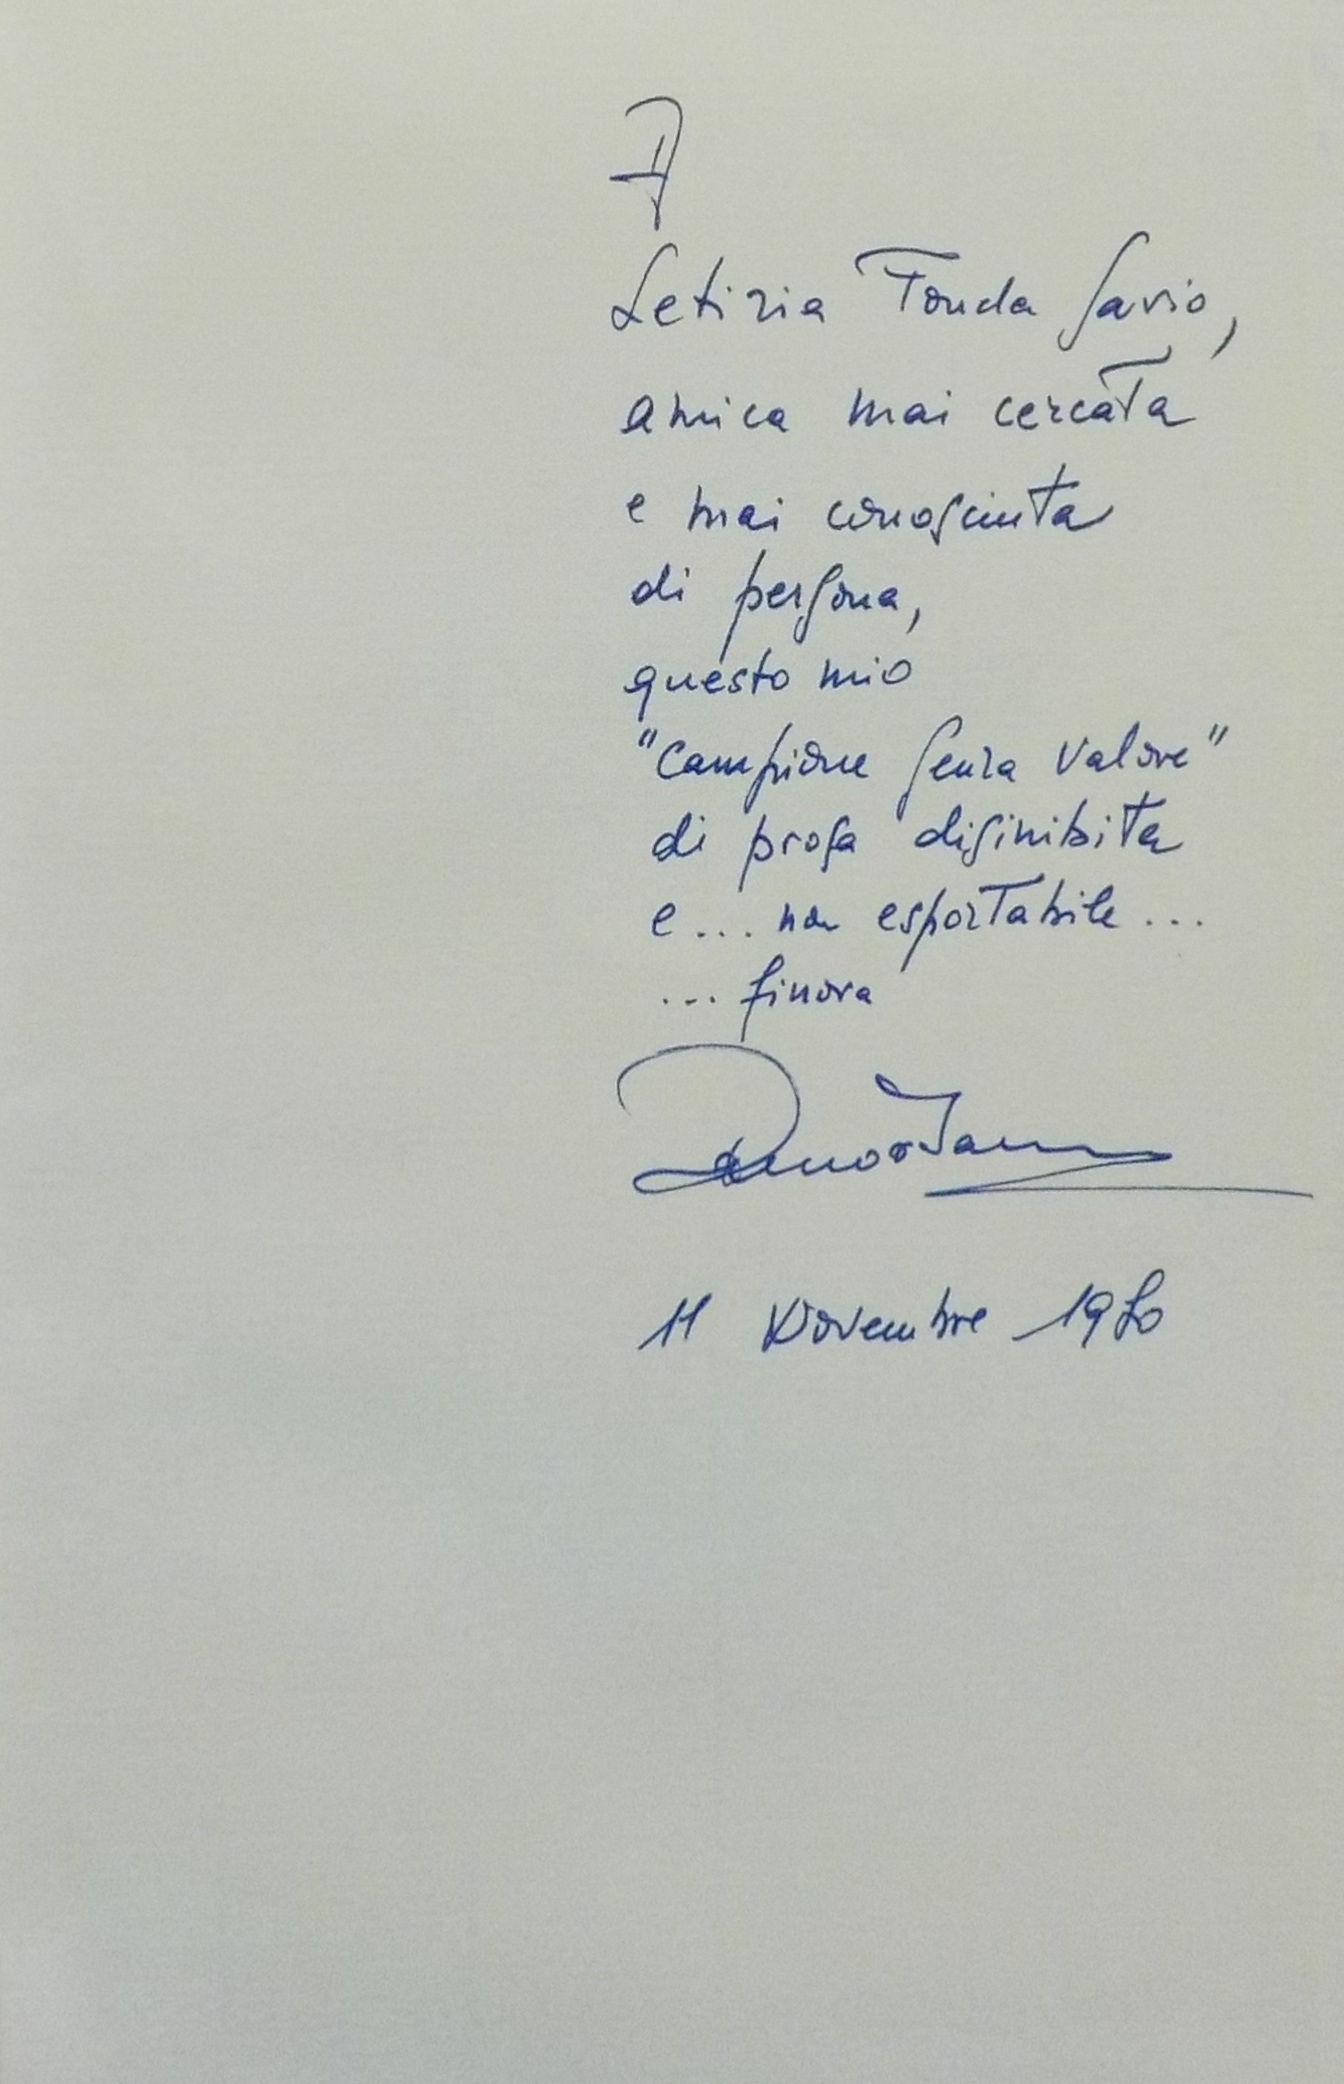 A
Letizia Fonda Savio,
amica mai cercata
e mai conosciuta
di persona,
questo mio
"Campione senza valore"
di prosa disinibita
e... non esportabile...
... finora
11 Novembre 1980